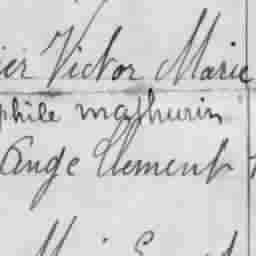 ier Victor Marie
phile mathurin
Ange Clement